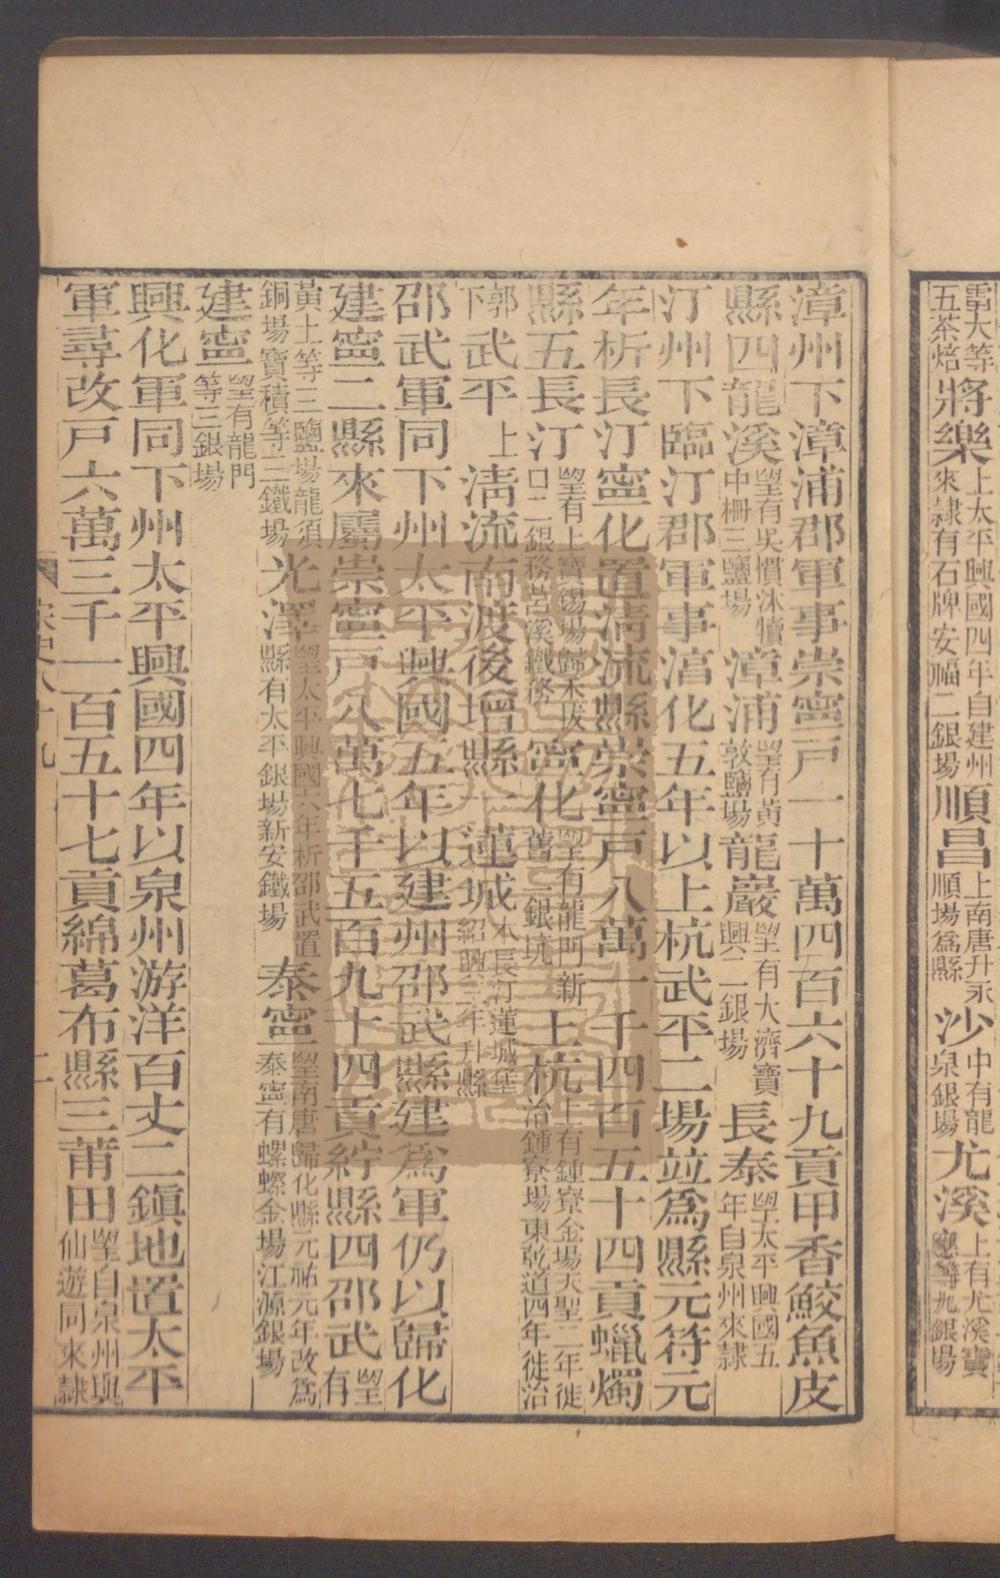 雩大等五茶焙將樂上太平興國四年自建州來隸有石牌安福二銀場順昌上南唐升永順場爲縣沙中有龍泉銀場尤溪上有尤溪寶應等九銀場
漳州下漳浦郡軍事崇寧戸一十萬四百六十九貢甲香鮫魚皮
縣四龍溪望有吳慣沐犢中柵三鹽場漳浦望有黃敦鹽場龍巖望有大濟寶興二銀場長泰望太平興國五年自泉州來隸
汀州下臨汀郡軍事淳化五年以上杭武平二場竝爲縣元符元
年析長汀寧化置清流縣崇寧戸八萬一千四百五十四貢蠟燭
縣五長汀望有上寶錫場歸禾拔口二銀務莒溪鐵務寧化望有龍門新舊二銀坑上杭上有鍾寮金場天聖二年徙治鍾寮場東乾道四年徙治
郭下武平上清流南渡後增縣一蓮城本長汀蓮城堡紹興三年升縣
邵武軍同下州太平興國五年以建州邵武縣建爲軍仍以歸化
建寧二縣來屬崇寧戸八萬七千五百九十四貢紵縣四邵武望有
黃土等三鹽場龍須銅場寶積等三鐵場光澤望太平興國六年析邵武置縣有太平銀場新安鐵場泰寧望南唐歸化縣元祐元年改爲泰寧有螺螺金場江源銀場
建寧望有龍門等三銀場
興化軍同下州太平興國四年以泉州游洋百丈二鎮地置太平
軍尋改戸六萬三千一百五十七貢綿葛布縣三莆田望自泉州與仙遊同來隸
宋史八十九